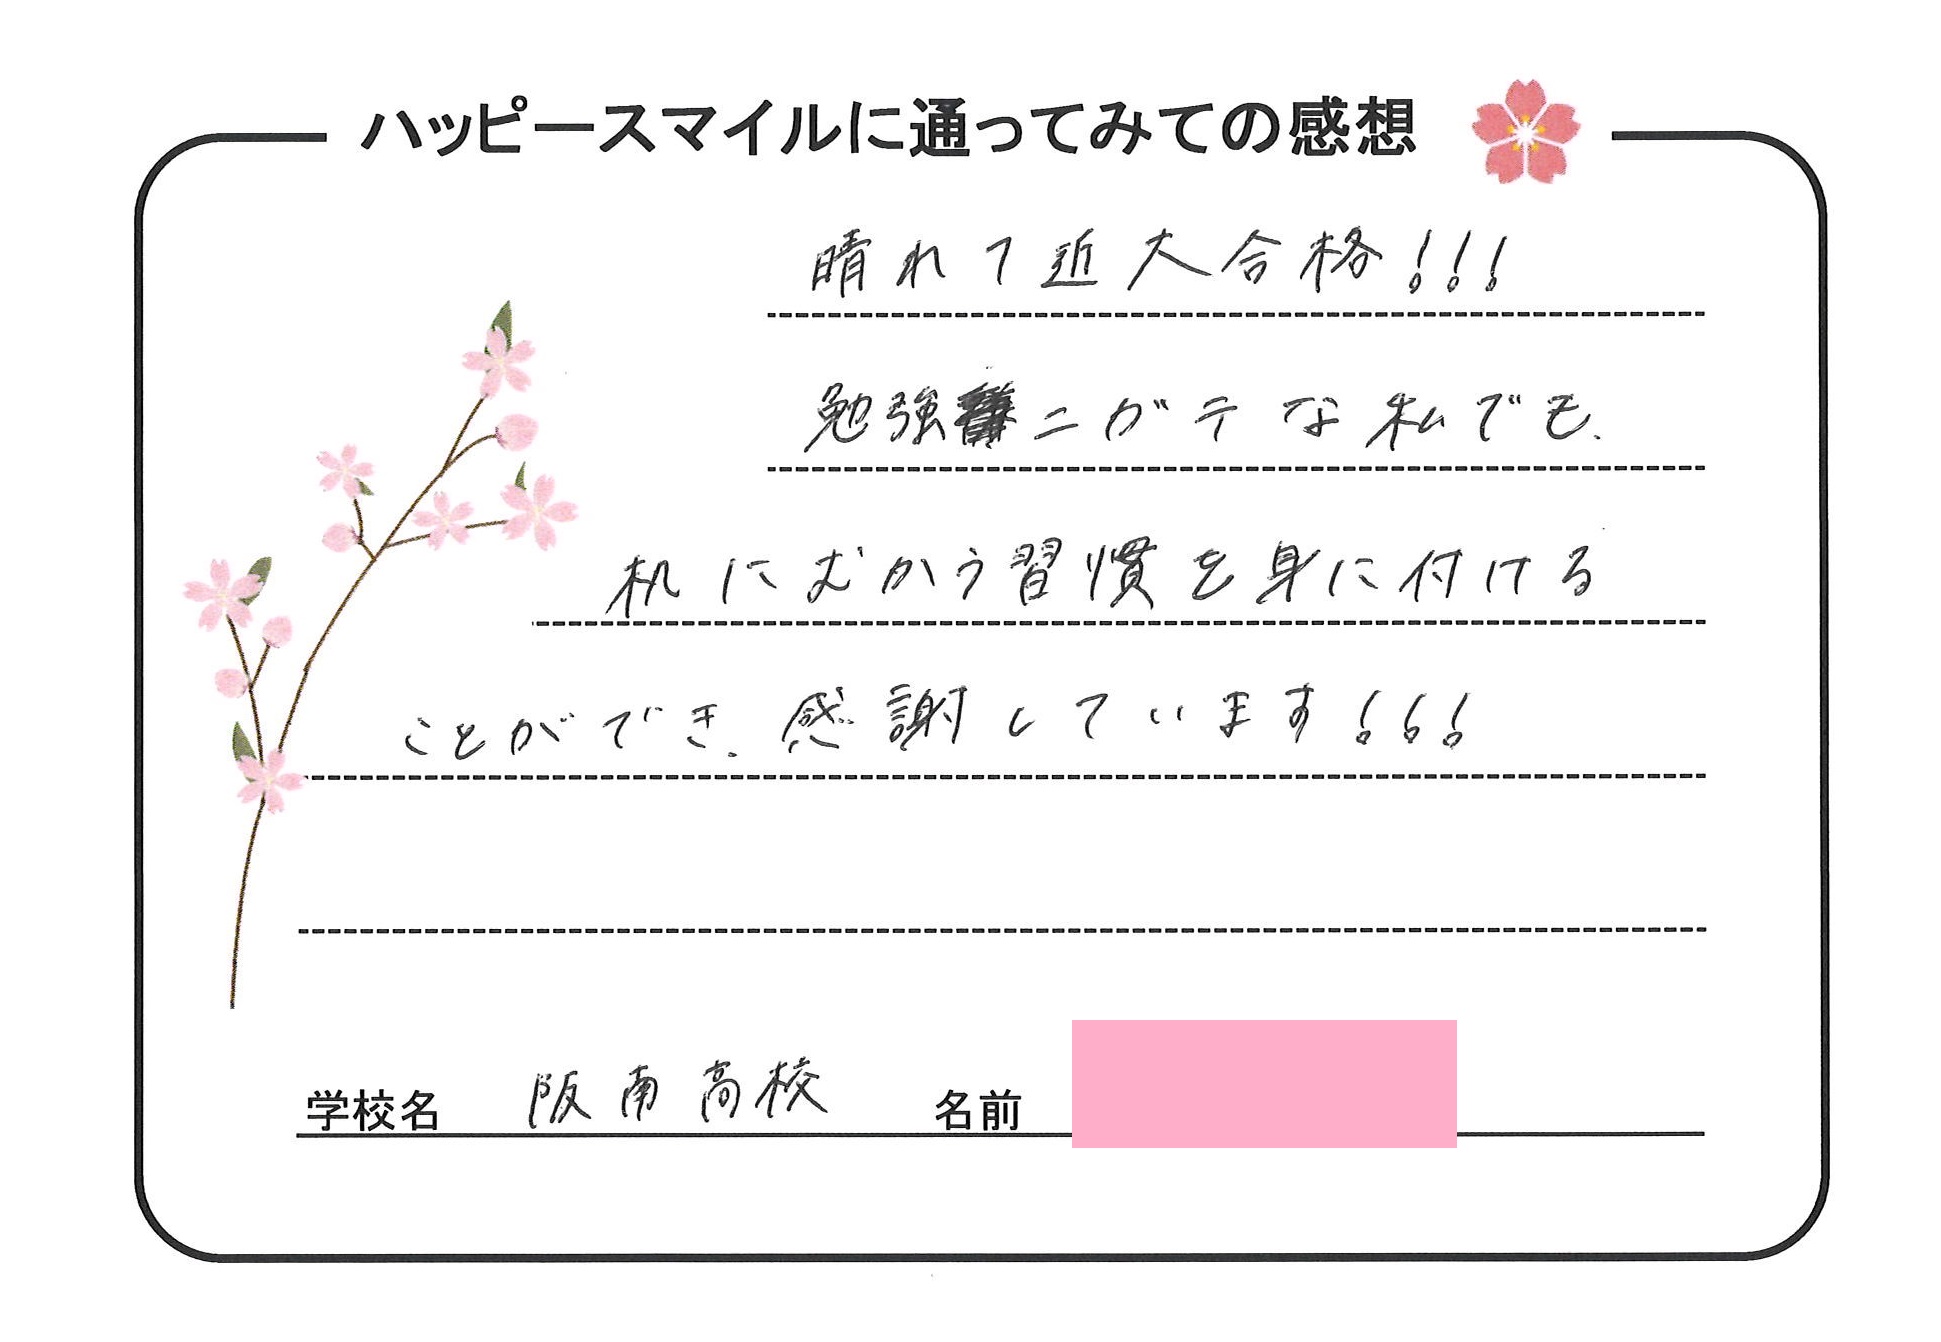 ハッピースマイルに通ってみての感想
晴れて近大合格!!!
勉強ニガテな私でも、
机にむかう習慣を身に付ける
ことができ、感謝しています!!!
学校名 阪南高校 名前